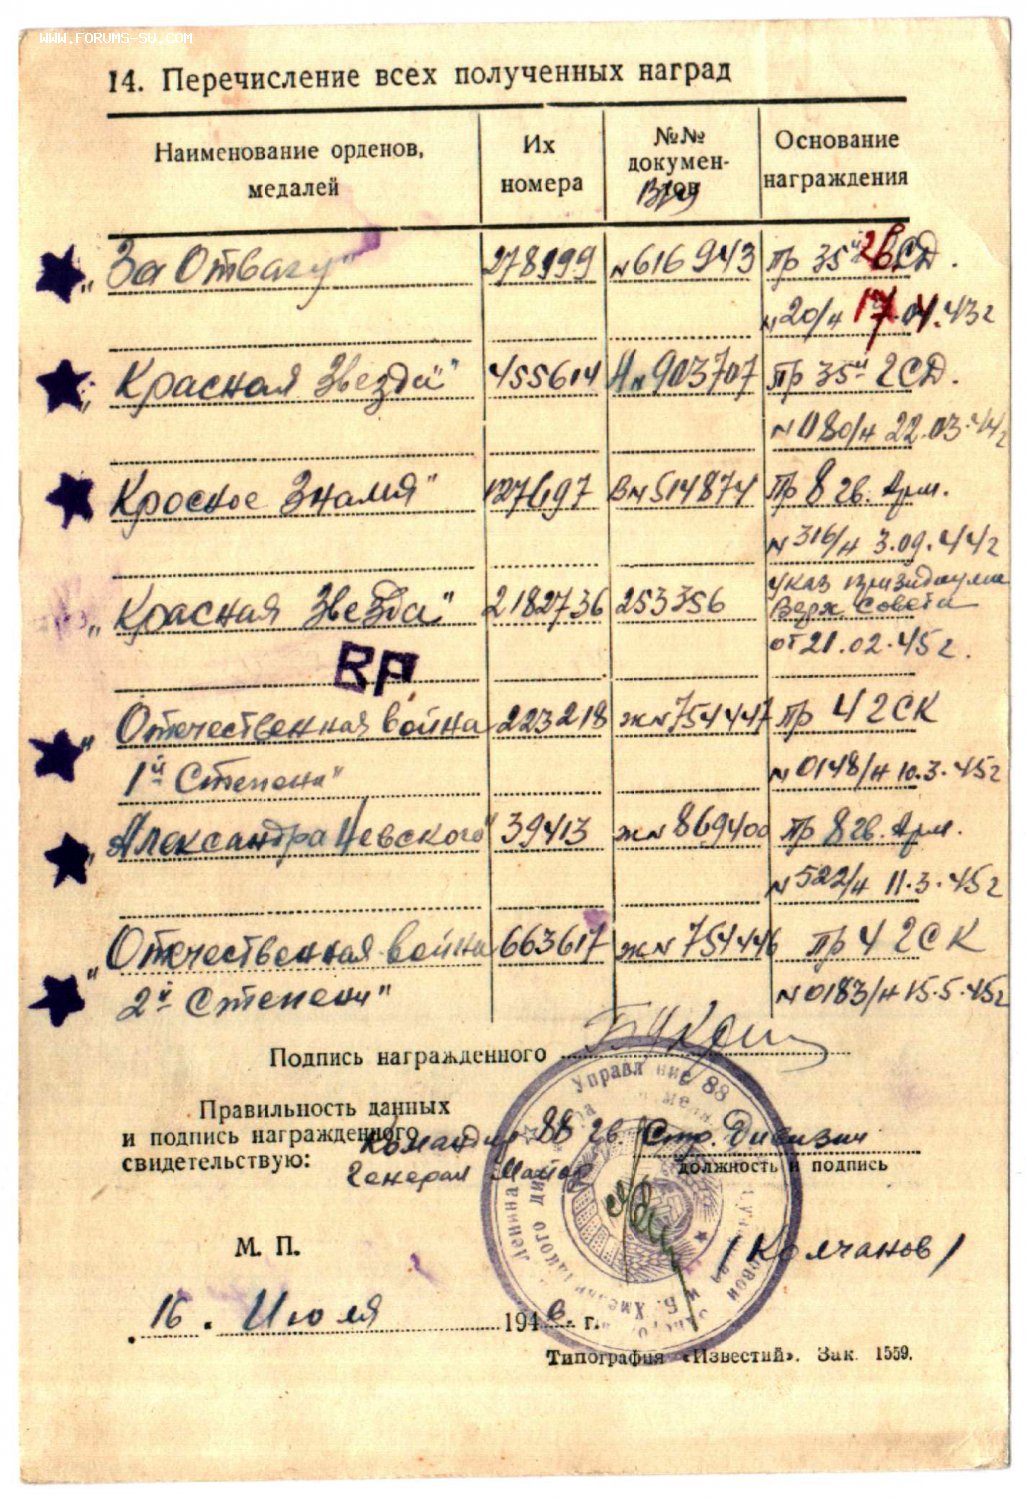 WWW.FORUMS-SU.COM
14. Перечисление всех полученных наград
Наименование орденов, медалей
Их номера
№№ докумен-тов
Основание награждения
„За Отвагу" 278999 №616943 Пр 35й гв СД.
№20/н 17.04.43г
„Красная Звезда" 455614 А№903707 Пр 35й ГСД.
№080/н 22.03.44г
Красное Знамя" 127697 В№514874 Пр 8 гв. Арм.
№316/н 3.09.44г
„Красная Звезда" 2182736 253356 Указ Призидиума
Верх. Совета
от 21.02.45г.
ВР
„Отечественная война 223218 Ж№754447 Пр 4 ГСК
1й Степени" №0148/н 10.3.45г
„Александра Невского" 39413 Ж№869400 Пр 8гв. Арм.
№522/н 11.3.45г
„Отечественная война 663617 Ж№754446 Пр 4 ГСК
2й Степени" №0183/н 15.5.45г
Подпись награжденного
Правильность данных
и подпись награжденного
свидетельствую:
Командир 88 гв. Стр. Дивизии
Генерал Майор
должность и подпись
Управление 88
Ленина
М. П.
/Колчанов/
16. Июля 1946. г.
Типография «Известий». Зак. 1559.